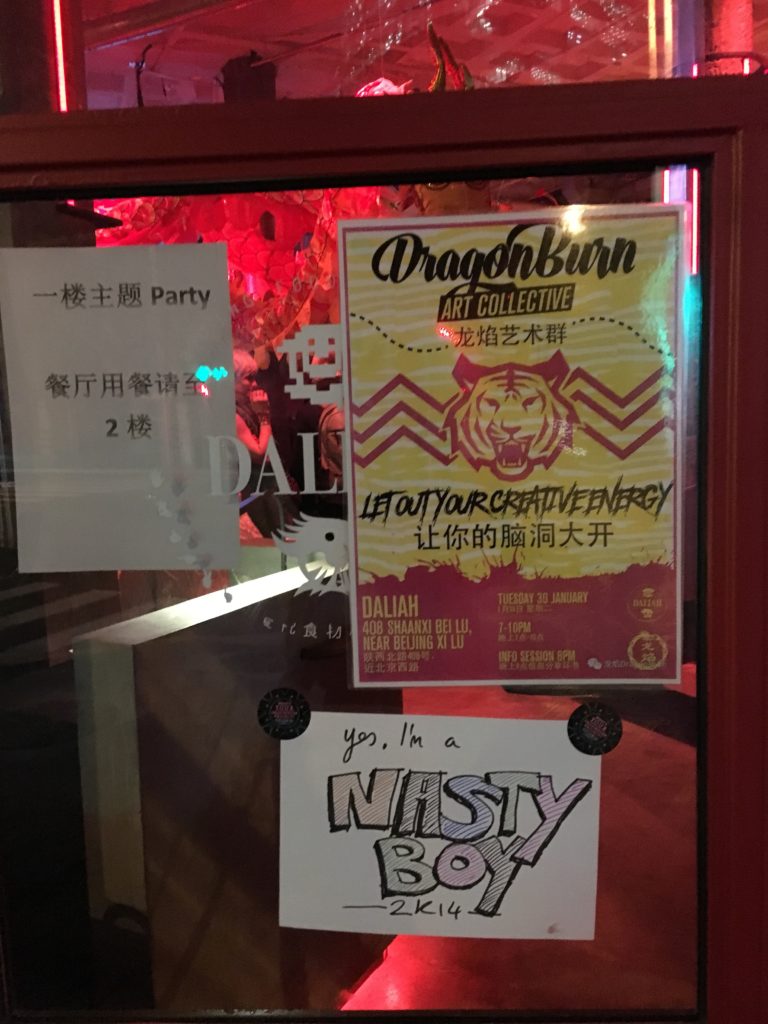 一楼主题 Party
餐厅用餐请至
2 楼
DragonBurn
ART COLLECTIVE
龙焰艺术群
LET OUT YOUR CREATIVE ENERGY
让你的脑洞大开
DALIAH
408 SHAANXI BEI LU,
NEAR BEIJING XI LU
陕西北路408号,
近北京西路
TUESDAY 30 JANUARY
7-10PM
INFO SESSION 8PM
DALIAH
龙焰
yes, I'm a
NASTY
BOY
2K14